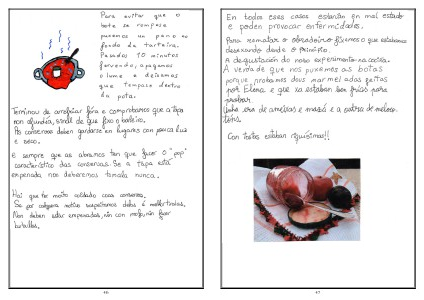 Para evitar que o
bote se rompese
puxemos un pano no
fondo da tarteira.
Pasados 10 minutos
fervendo, apagamos
o lume e deixamos
que tempase dentro
da pota.
Terminou de arrefriar fóra e comprobamos que a tapa
non afundía, sinal de que fixo o baleiro.
As conservas deben gardarse en lugares con pouca luz
e seco.
E sempre que as abramos ten que facer o "pop"
característico das conservas. Se a tapa está
empenada non deberemos tomala nunca.
Hai que ter moito coidado coas conservas.
Se por calquera motivo sospeitamos delas é mellor tiralas.
Non deben estar empenadas, nin con mofo, nin facer
burbullas.
46
En todos eses casos estarán en mal estado
e poden provocar enfermidades.
Para rematar o obradoiro fixemos o que estabamos
desexando desde o principio.
A degustación do noso experimento na cociña.
A verdade que nos puxemos as botas
porque probamos dúas marmeladas feitas
por Elena e que xa estaban ben frías para
probar.
Unha era de ameixas e mazá e a outra de meloco-
tóns.
Con todos estaban riquísimas!!
47